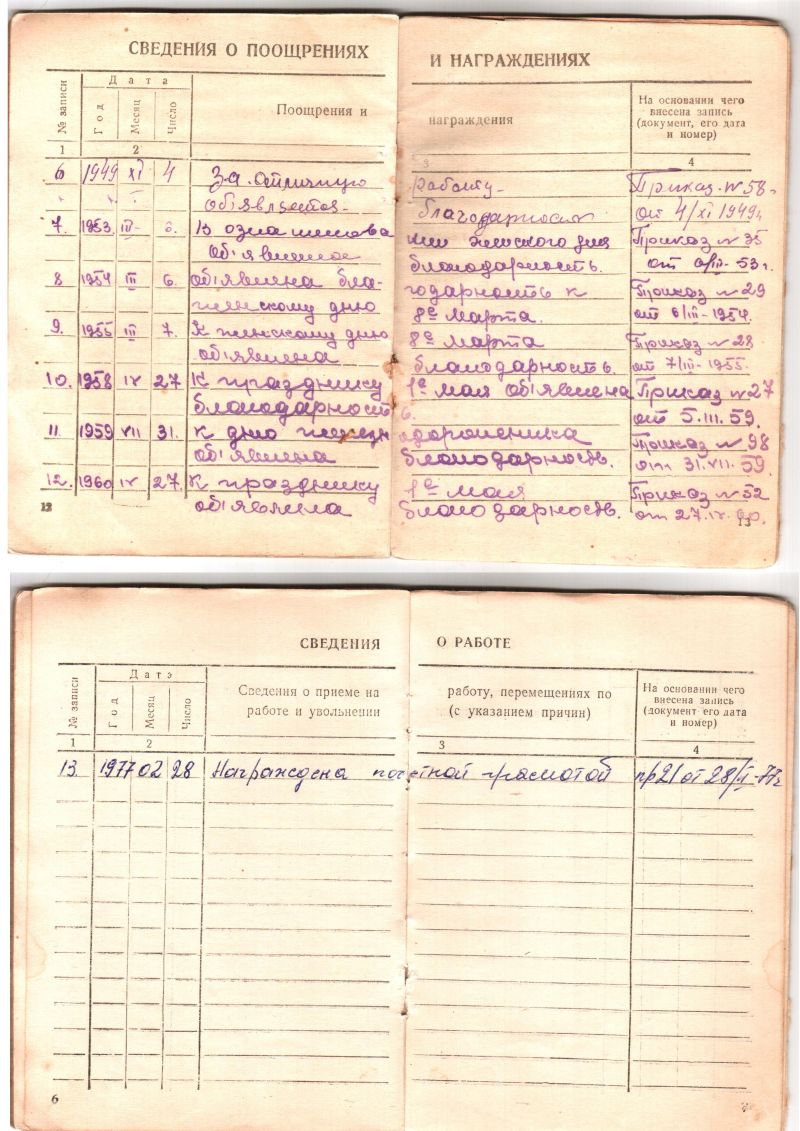 СВЕДЕНИЯ О ПООЩРЕНИЯХ И НАГРАЖДЕНИЯХ
№ записи Дата Поощрения и награждения На основании чего внесена запись (документ, его дата и номер)
Год Месяц Число
1 2 3 4
6 1949 XI 4 За отличную работу Приказ № 58
объявляется благодарность от 4/XI 1949г
7. 1953 III Приказ № 35
благодарность. 53 г.
8 1954 III 6. объявлена бла- годарность к Приказ № 29
женскому дню 8е Марта. от 6/III-1954г.
9. 1955 III 7. К женскому дню 8е Марта Приказ № 28
объявлена благодарность. от 7/III-1955.
10. 1958 IV 27 К празднику 1е мая объявлена Приказ № 27
благодарность от 5.III.59.
11. 1959 VII 31. К дню Приказ № 98
объявлена благодарность. от 31.VII.59.
12. 1960 IV 27. К празднику 1е мая Приказ № 52
объявлена благодарность. от 27.IV.60.
12 13
СВЕДЕНИЯ О РАБОТЕ
№ записи Датэ Сведения о приеме на работу, перемещениях по На основании чего
Год Месяц Число работе и увольнении (с указанием причин) внесена запись (документ его дата и номер)
1 2 3 4
13. 1977 02 28 Награждена почетной грамотой пр 21 от 28/II-77г
6